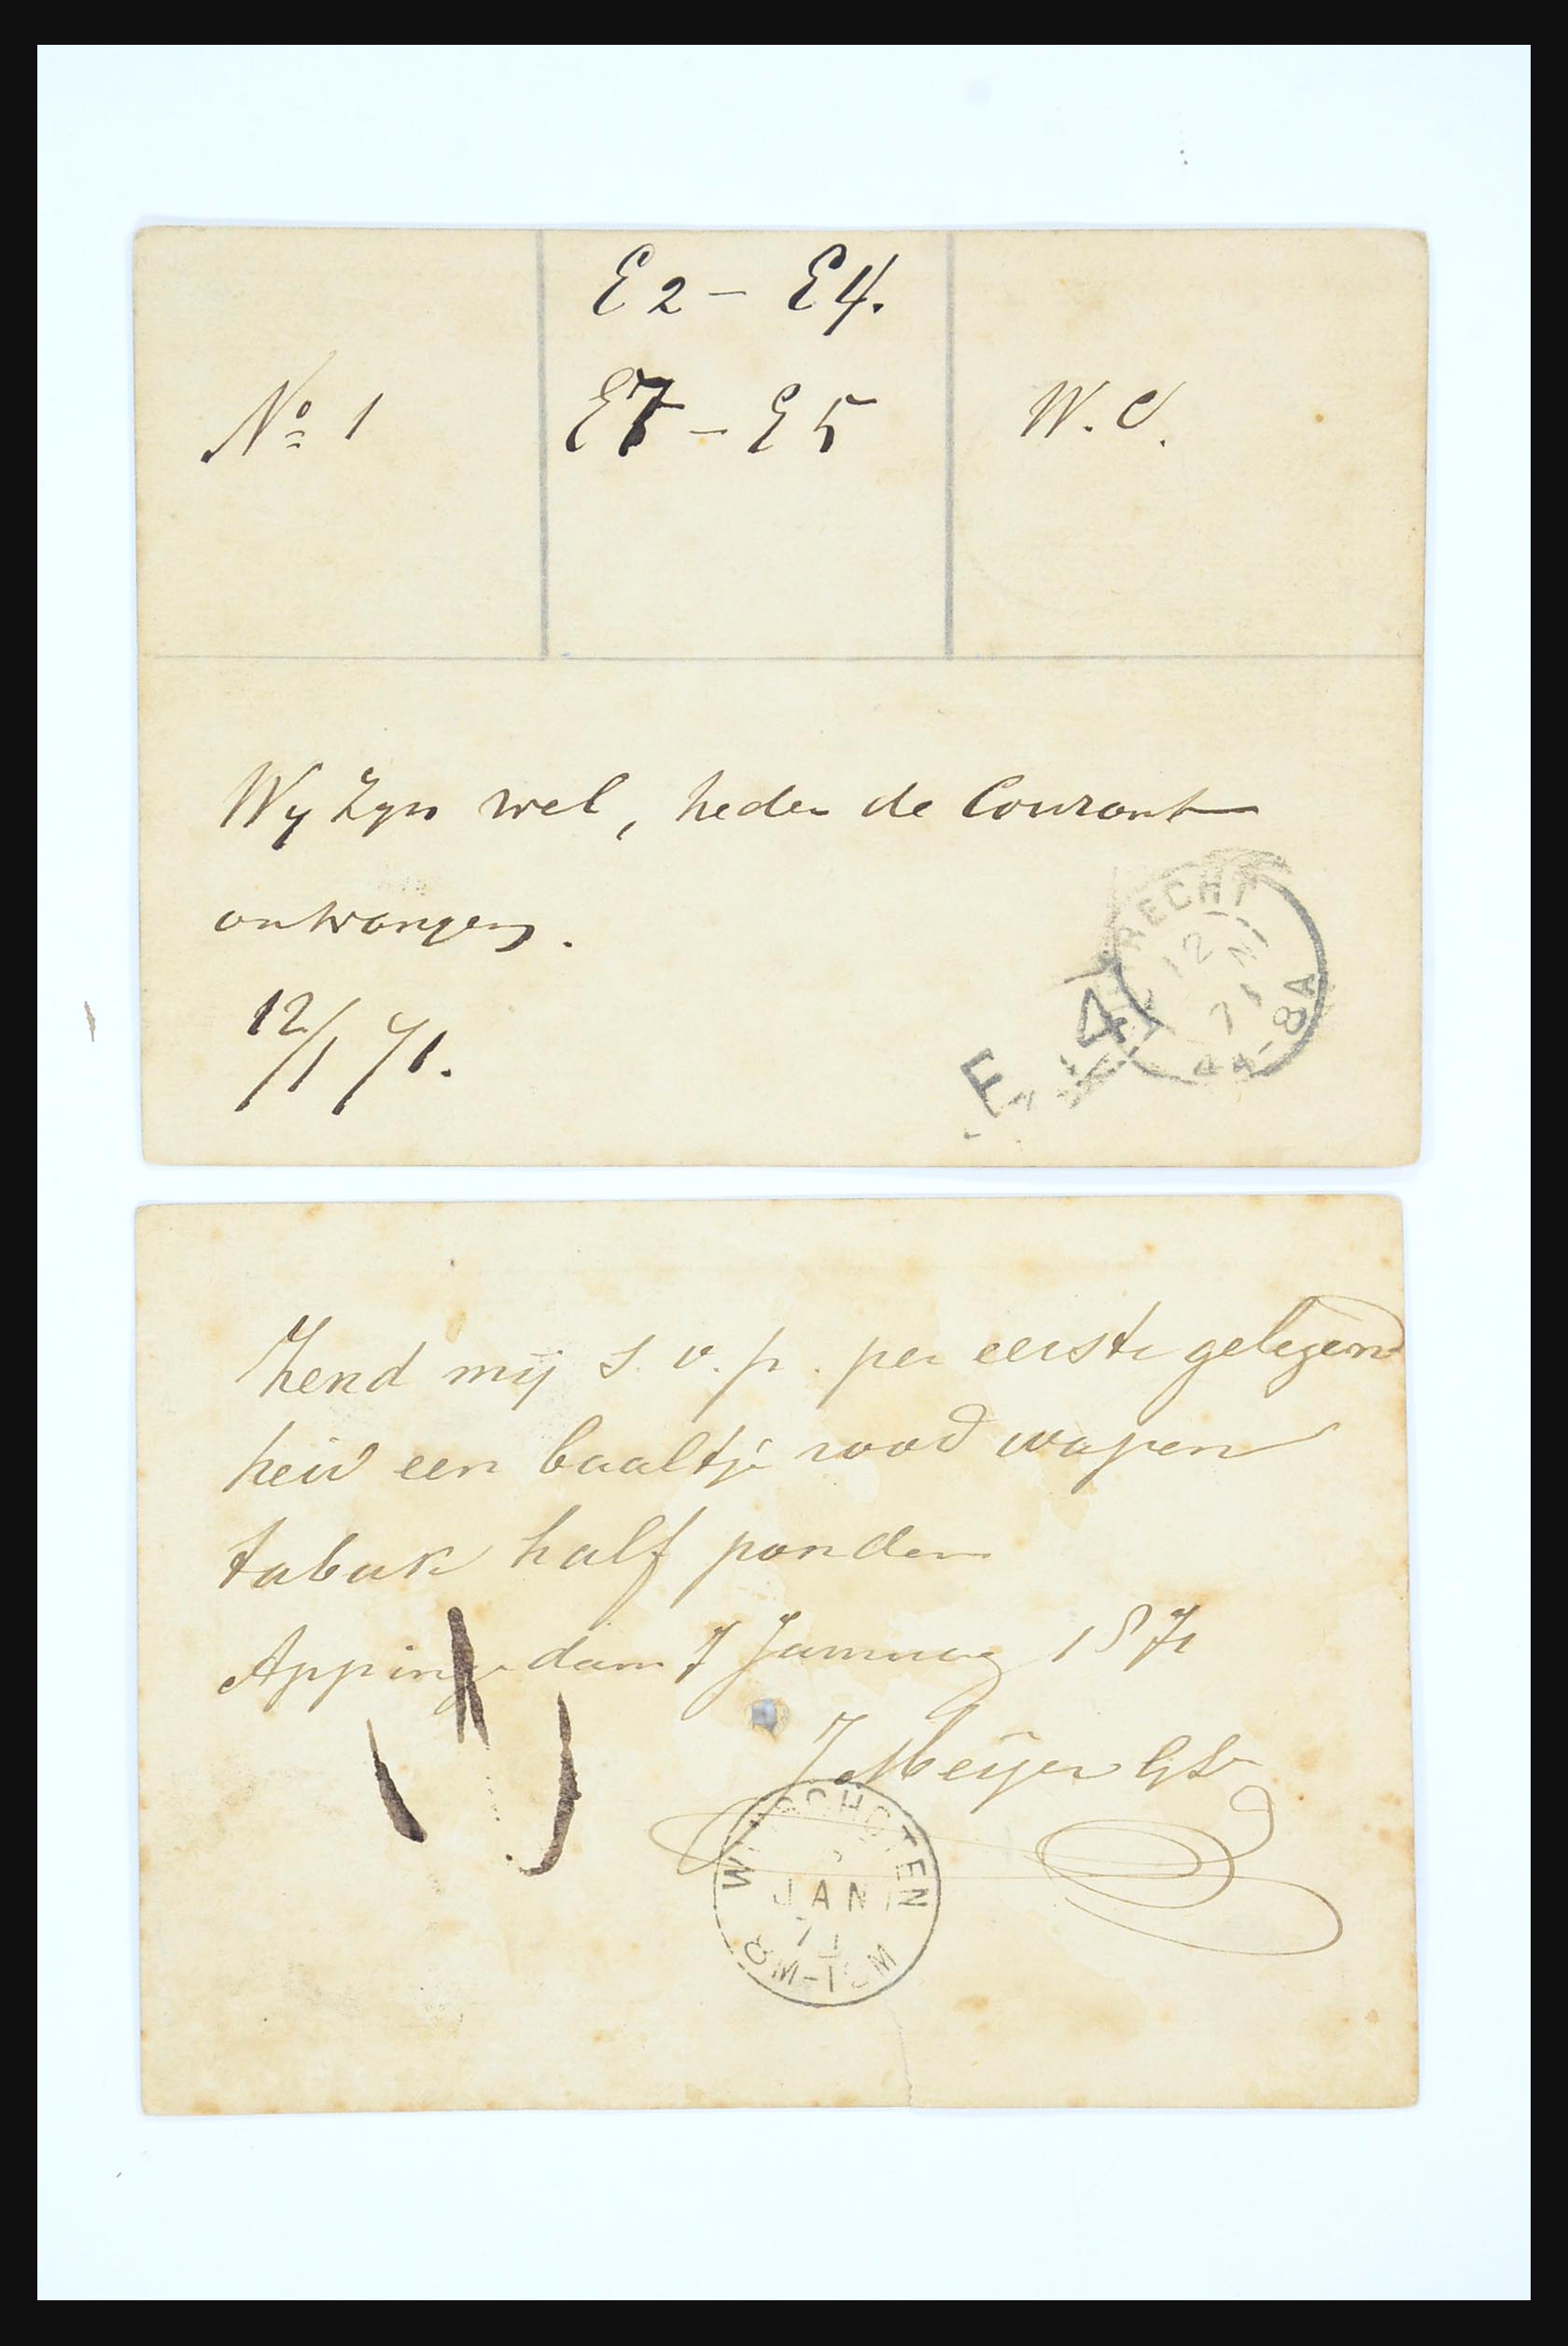 E2 – E4.
Nº 1
E7 – E5
W. C.
Wy Zyn wel, heden de Courant
ontvangen.
12/1 71.
RECHT
12
71
4A-8A
F. 4
Zend mij s.v.p. per eerste gelegend
heid een baaltje rood wapen
tabak half ponden
Appingedam 7 Januarij 1871
J Meijer
WINSCHOTEN
JAN
71
8M-12M